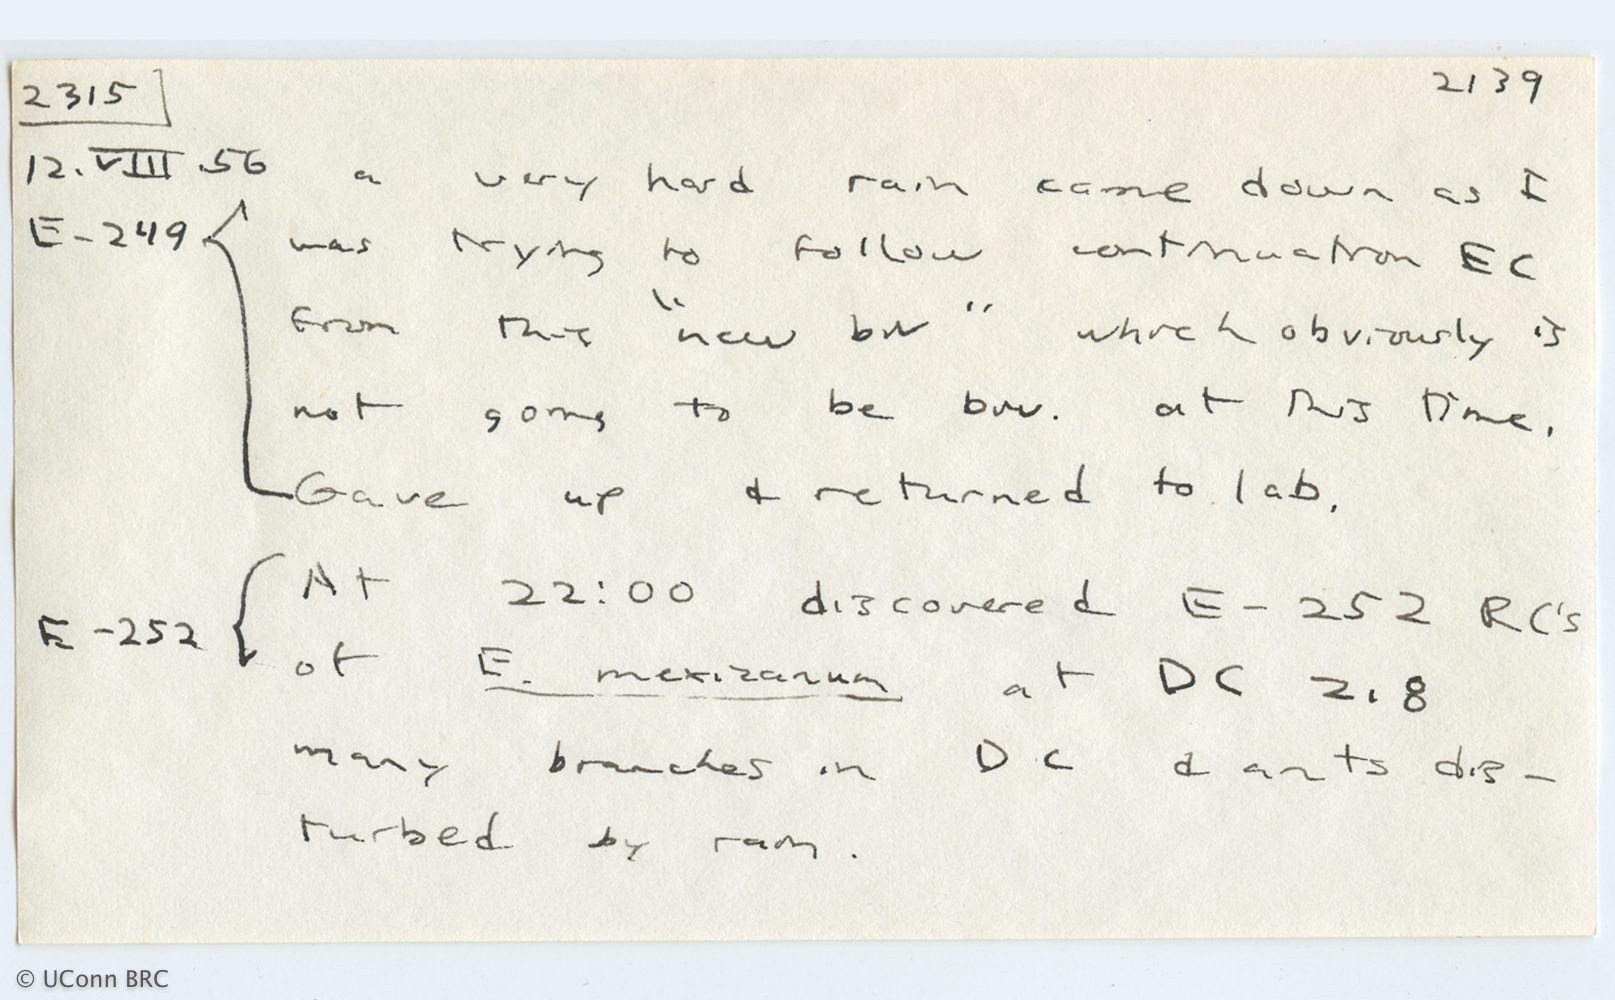 2315
2139
12.VIII.56 a very hard rain came down as I
E-249 was trying to follow continuation EC
from this "new biv" which obviously is
not going to be biv. at this time.
Gave up & returned to lab.
At 22:00 discovered E-252 RC's
E-252 of E. mexicanum at DC 2.8
many branches in DC & ants dis-
turbed by rain.
© UConn BRC